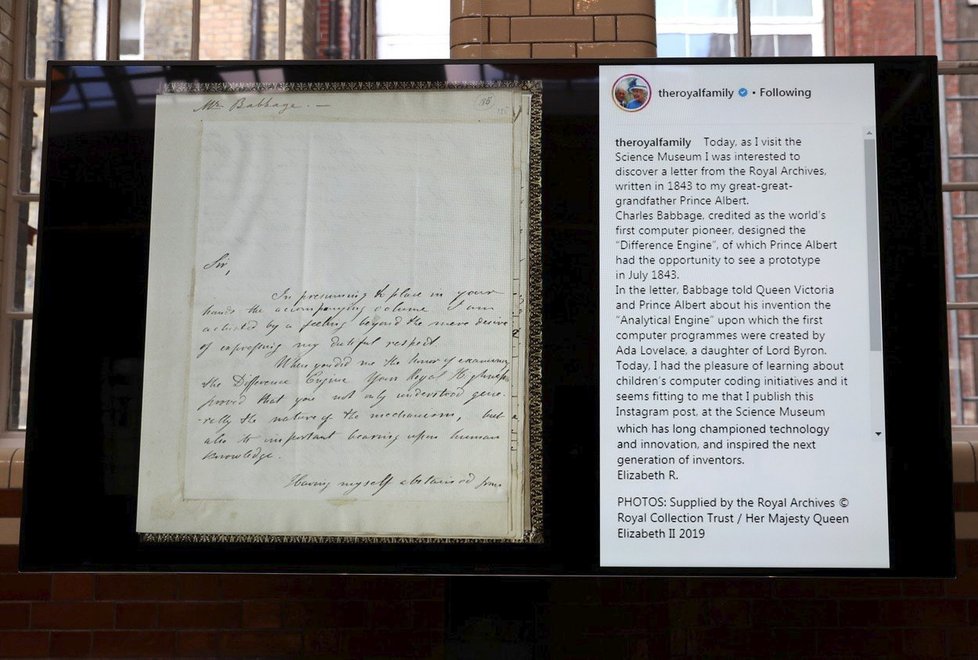 Mr. Babbage. —
Sir,
In presuming to place in your
hands the accompanying volume I am
actuated by a feeling beyond the mere desire
of expressing my dutiful respect.
When you did me the honor of examining
the Difference Engine Your Royal Highness
proved that you not only understood gene-
-rally the nature of the mechanism, but
also its important bearing upon human
knowledge.
Having myself abstained from
theroyalfamily • Following
theroyalfamily Today, as I visit the
Science Museum I was interested to
discover a letter from the Royal Archives,
written in 1843 to my great-great-
grandfather Prince Albert.
Charles Babbage, credited as the world's
first computer pioneer, designed the
"Difference Engine", of which Prince Albert
had the opportunity to see a prototype
in July 1843.
In the letter, Babbage told Queen Victoria
and Prince Albert about his invention the
"Analytical Engine" upon which the first
computer programmes were created by
Ada Lovelace, a daughter of Lord Byron.
Today, I had the pleasure of learning about
children's computer coding initiatives and it
seems fitting to me that I publish this
Instagram post, at the Science Museum
which has long championed technology
and innovation, and inspired the next
generation of inventors.
Elizabeth R.
PHOTOS: Supplied by the Royal Archives ©
Royal Collection Trust / Her Majesty Queen
Elizabeth II 2019